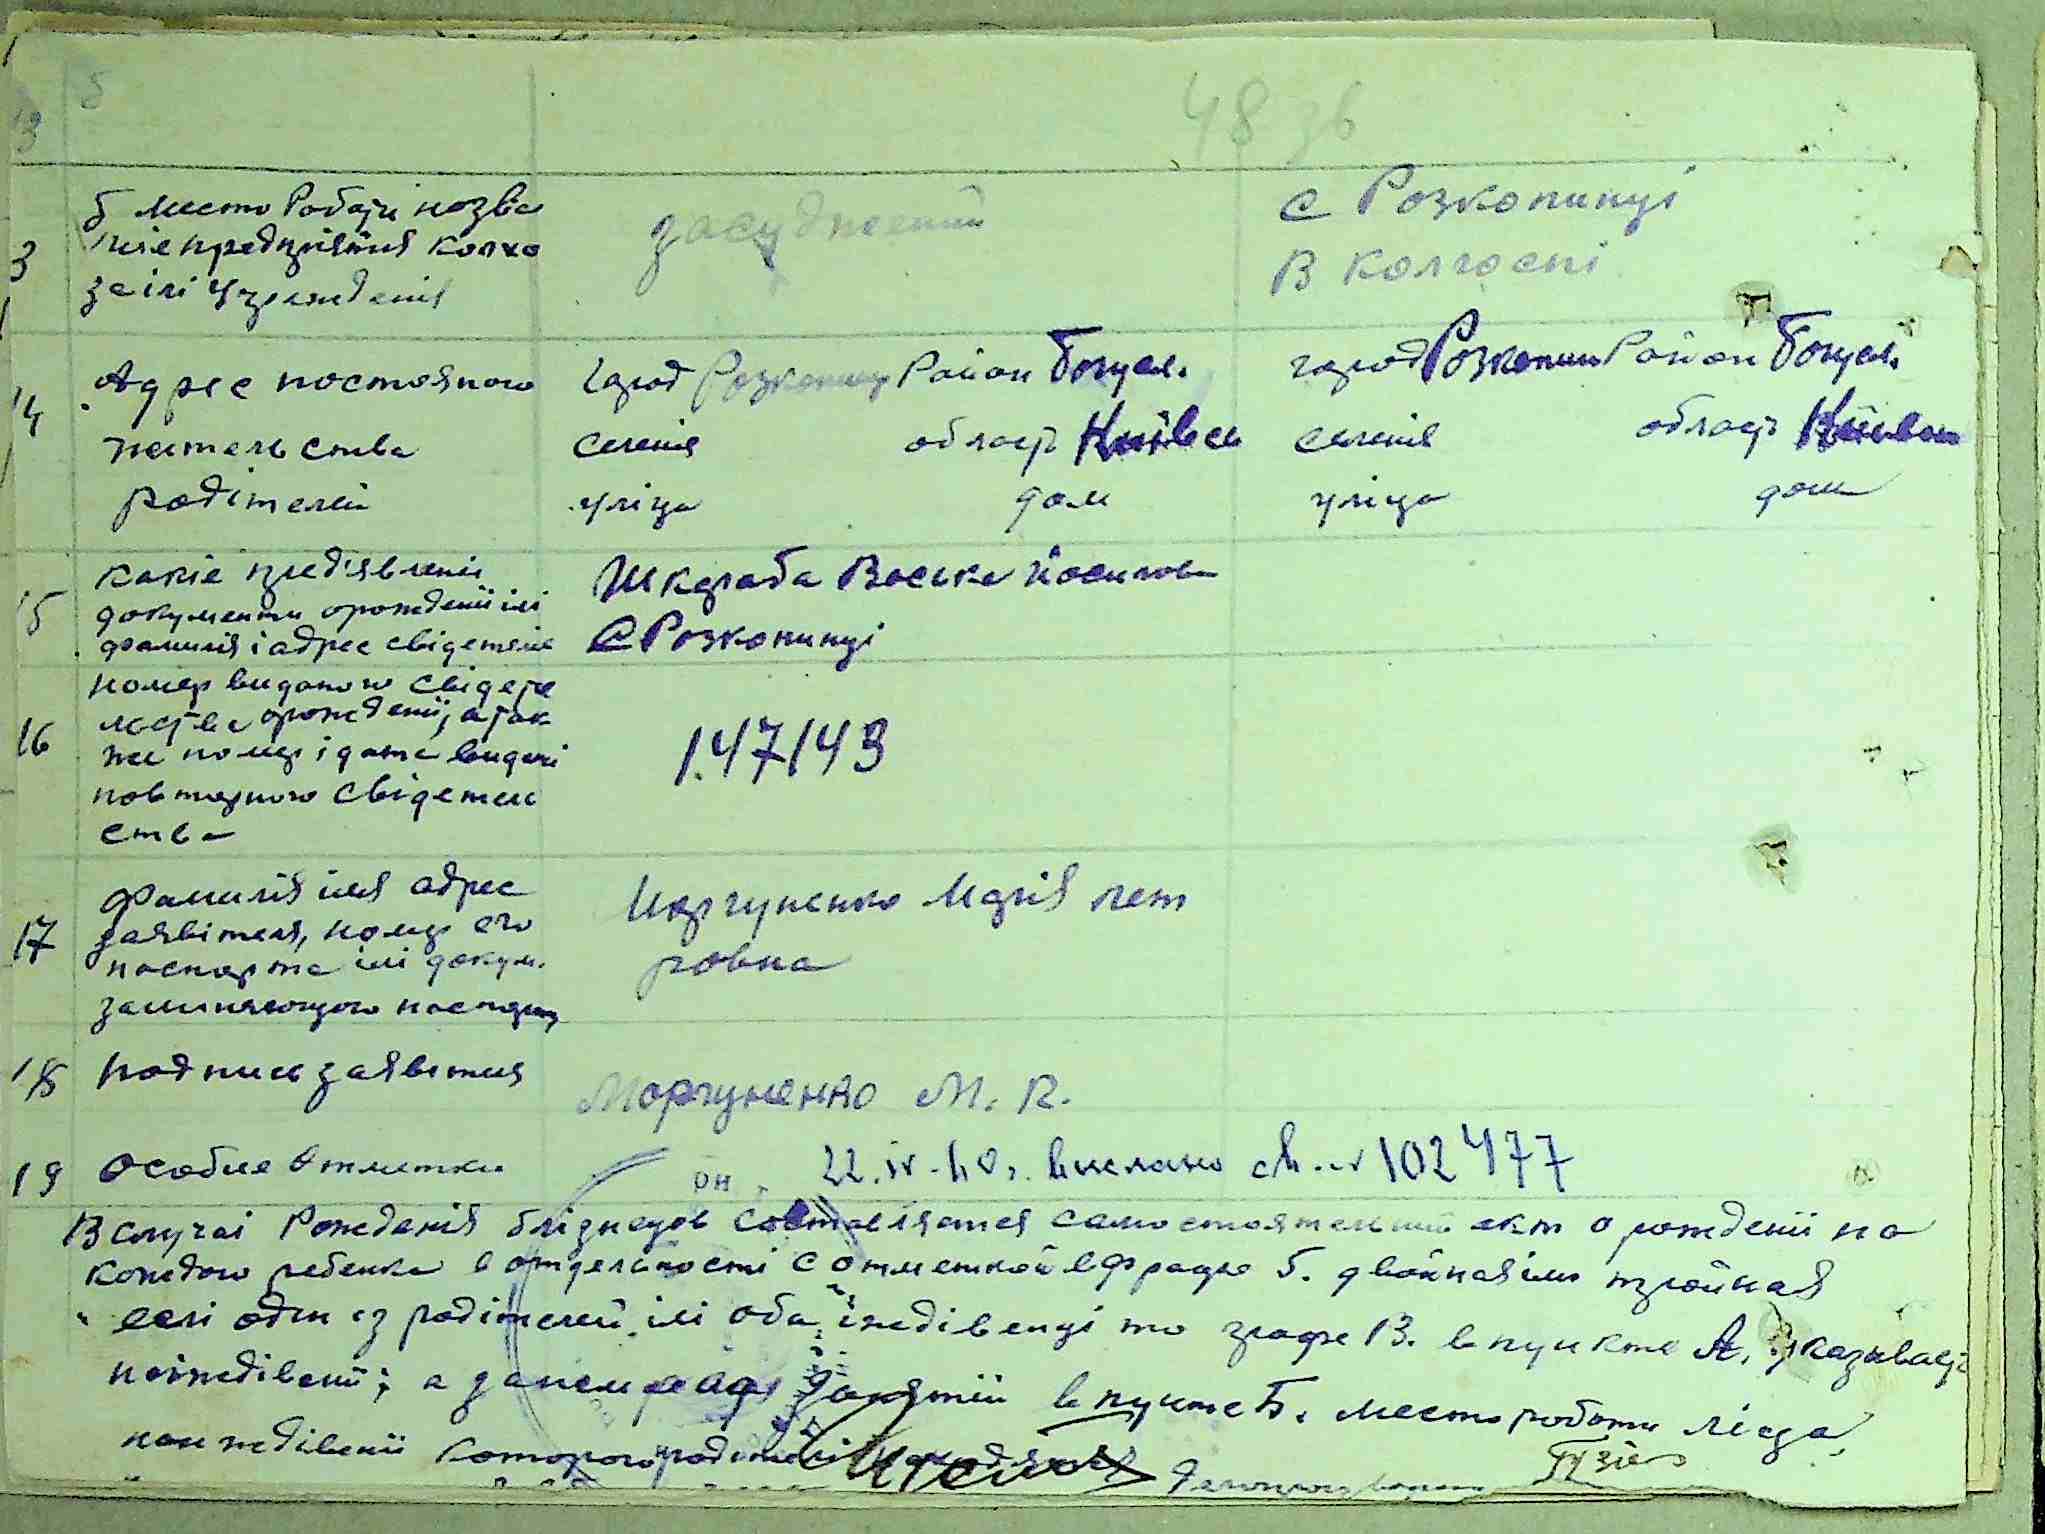 б
48 зв
13
3 б место Работи назва
ніе предприятия колхо
за ілі учреждения
засуджений
с Розкопинці
в колгоспі
14 Адрес постояного
жительства
родітелей
город Розкопинці Район Богусл.
селенія область Київськ
уліца дом
город Розкопин Район Богусл.
селенія область Київськ
уліца дом
15 какіе предявлені
документи орождениї ілі
фамилія і адрес свідетеле
Шкараба Васька Йосипов
с Розкопинці
16 номер виданого свідете
льства орождениї, а так
же номер і дата видачі
повторного свідетель
ства
1.47143
17 Фамилія імя адрес
заявітеля, номер его
паспорта ілі докум.
заминяющого паспорт
Моргуненко Марія пет
ровна
18 подпись заявітеля
Моргуненко М. П.
19 особие отметки
22.IV-40г. вислано св. № 102477
В случаі Рожденія близнецов составляется самостоятельний акт о рождениї на
каждого ребенка в отдельності с отметкой в Фрацю 5. двойная ілі тройная
еслі один із родітелей ілі оба іждівенці то графе В. в пункте А. указивает
ноіждівениї; а далем заняттій в пункте Б. место роботи ліца
наиждівениї которого родітелі находятся